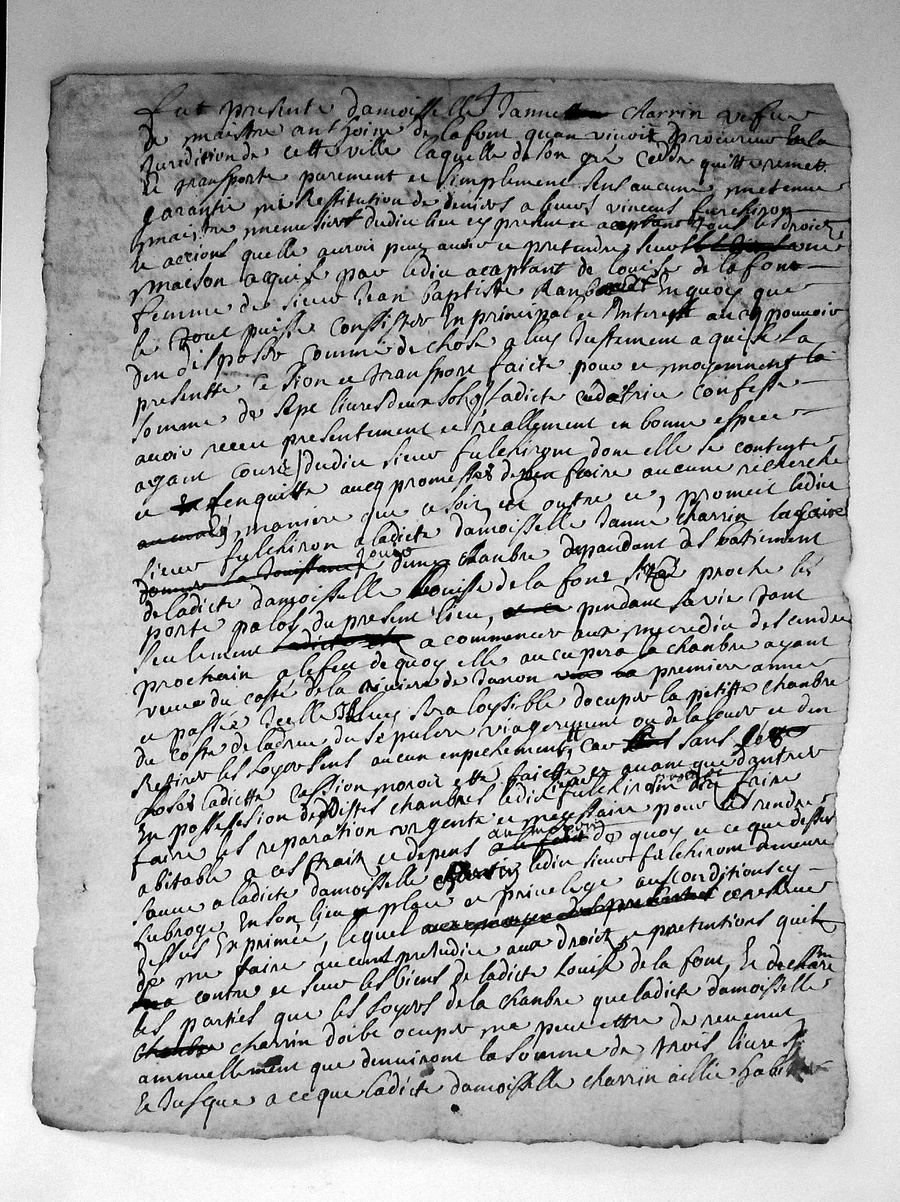 fut presente damoiselle Janne charrin vefve
de maistre anthoine de la font quan vivoit procureur en la
Juridition de cette ville laquelle de son gré cedde quitte remett
et transporte purement et simplement sens aucune metenue
garantie ni Restitution de deniers a sieur vincens fulchiron
maistre menusier dudict lieu icy present et aceptant tous les droictz
et actions quelle auroit peu avoir et pretendre sur une
maison acquise par ledict aceptant de louise de la font
femme de sieur Jean baptiste en quoy que
le tout puisse consister En principal et Interestz aveq pouvoir
den disposer comme de chose a luy Justement aquise la
presentte cession et transport faicte pour et moyenment la
somme de sept livres deux solz ladicte cedatrice confesse
avoir receu presentement et reallement en bonne espece
ayant cours dudict sieur fulchiron dont elle se contente
et len quitte aveq promesse de nen faire aucune recherche
maniere que ce soit et outre ce, promect ledict
sieur fulchiron a ladicte damoisselle Janne charrin la faire
jouir dune chanbre depandant des batiement
de ladicte damoisselle louise de la font proche les
porte palos du present lieu, pendant sa vie tant
seulement a commencer aux mecredic des cendre
prochain a leffect de quoy elle aucupera la chanbre ayant
veue du costé de la riviere de premiere annee
et passee Icelle luy sera loysible docuper la petitte chanbre
du coste de la rue du sepulcre viagerement ou de la louer et den
Retirer les loyers sens aucun enpechement, car sans
ladicte cession noroit esté faicte et avant que dantrer
En possession desdittes chanbres ledict sieur fulchiron faire
faire les reparation urgente et necessaire pour les rendre
abitable a ces frait et depens de quoy et ce que dessus
sauve a ladicte damoisselle charrin ledict sieur fulchiron demeure
subrogé En son lieu place et privelege aux conditions cy
dessus Exprimée, lequel
de ne faire aucunt prejudice aux droictz et pretentions quil
a contre et sur les biens de ladicte louise de la font, Et declaré
les parties que les loyers de la chanbre que ladicte damoisselle
charrin doibt ocuper ne peuvent estre de revenut
annuellement que denviront la somme de trois livres
Et Jusque a ce que ladicte damoisselle charrin aillie